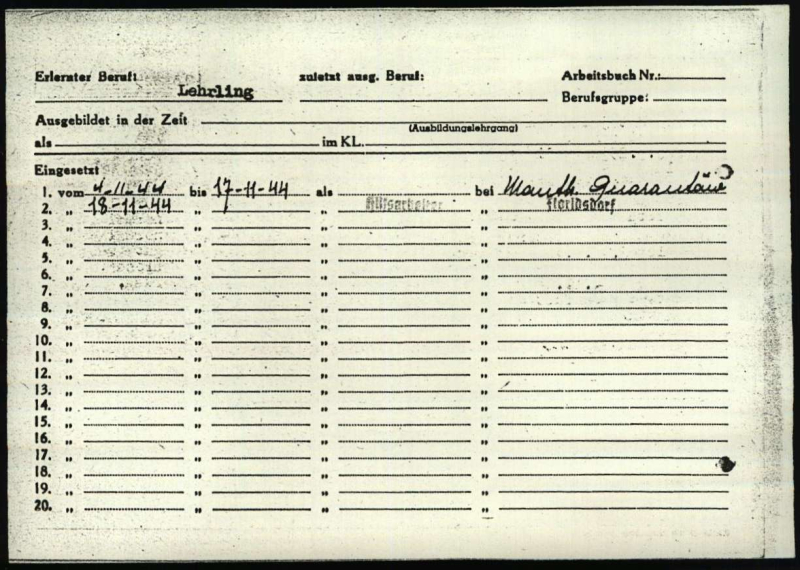 Erlernter Beruf: zuletzt ausg. Beruf: Arbeitsbuch Nr.:
Lehrling Berufsgruppe:
Ausgebildet in der Zeit
(Ausbildungslehrgang)
als im KL.
Eingesetzt
1. vom 4-11-44 bis 17-11-44 als bei Mauth. Quarantäne
2. „ 18-11-44 „ „ Hilfsarbeiter „ Floridsdorf
3. „ „ „ „
4. „ „ „ „
5. „ „ „ „
6. „ „ „ „
7. „ „ „ „
8. „ „ „ „
9. „ „ „ „
10. „ „ „ „
11. „ „ „ „
12. „ „ „ „
13. „ „ „ „
14. „ „ „ „
15. „ „ „ „
16. „ „ „ „
17. „ „ „ „
18. „ „ „ „
19. „ „ „ „
20. „ „ „ „